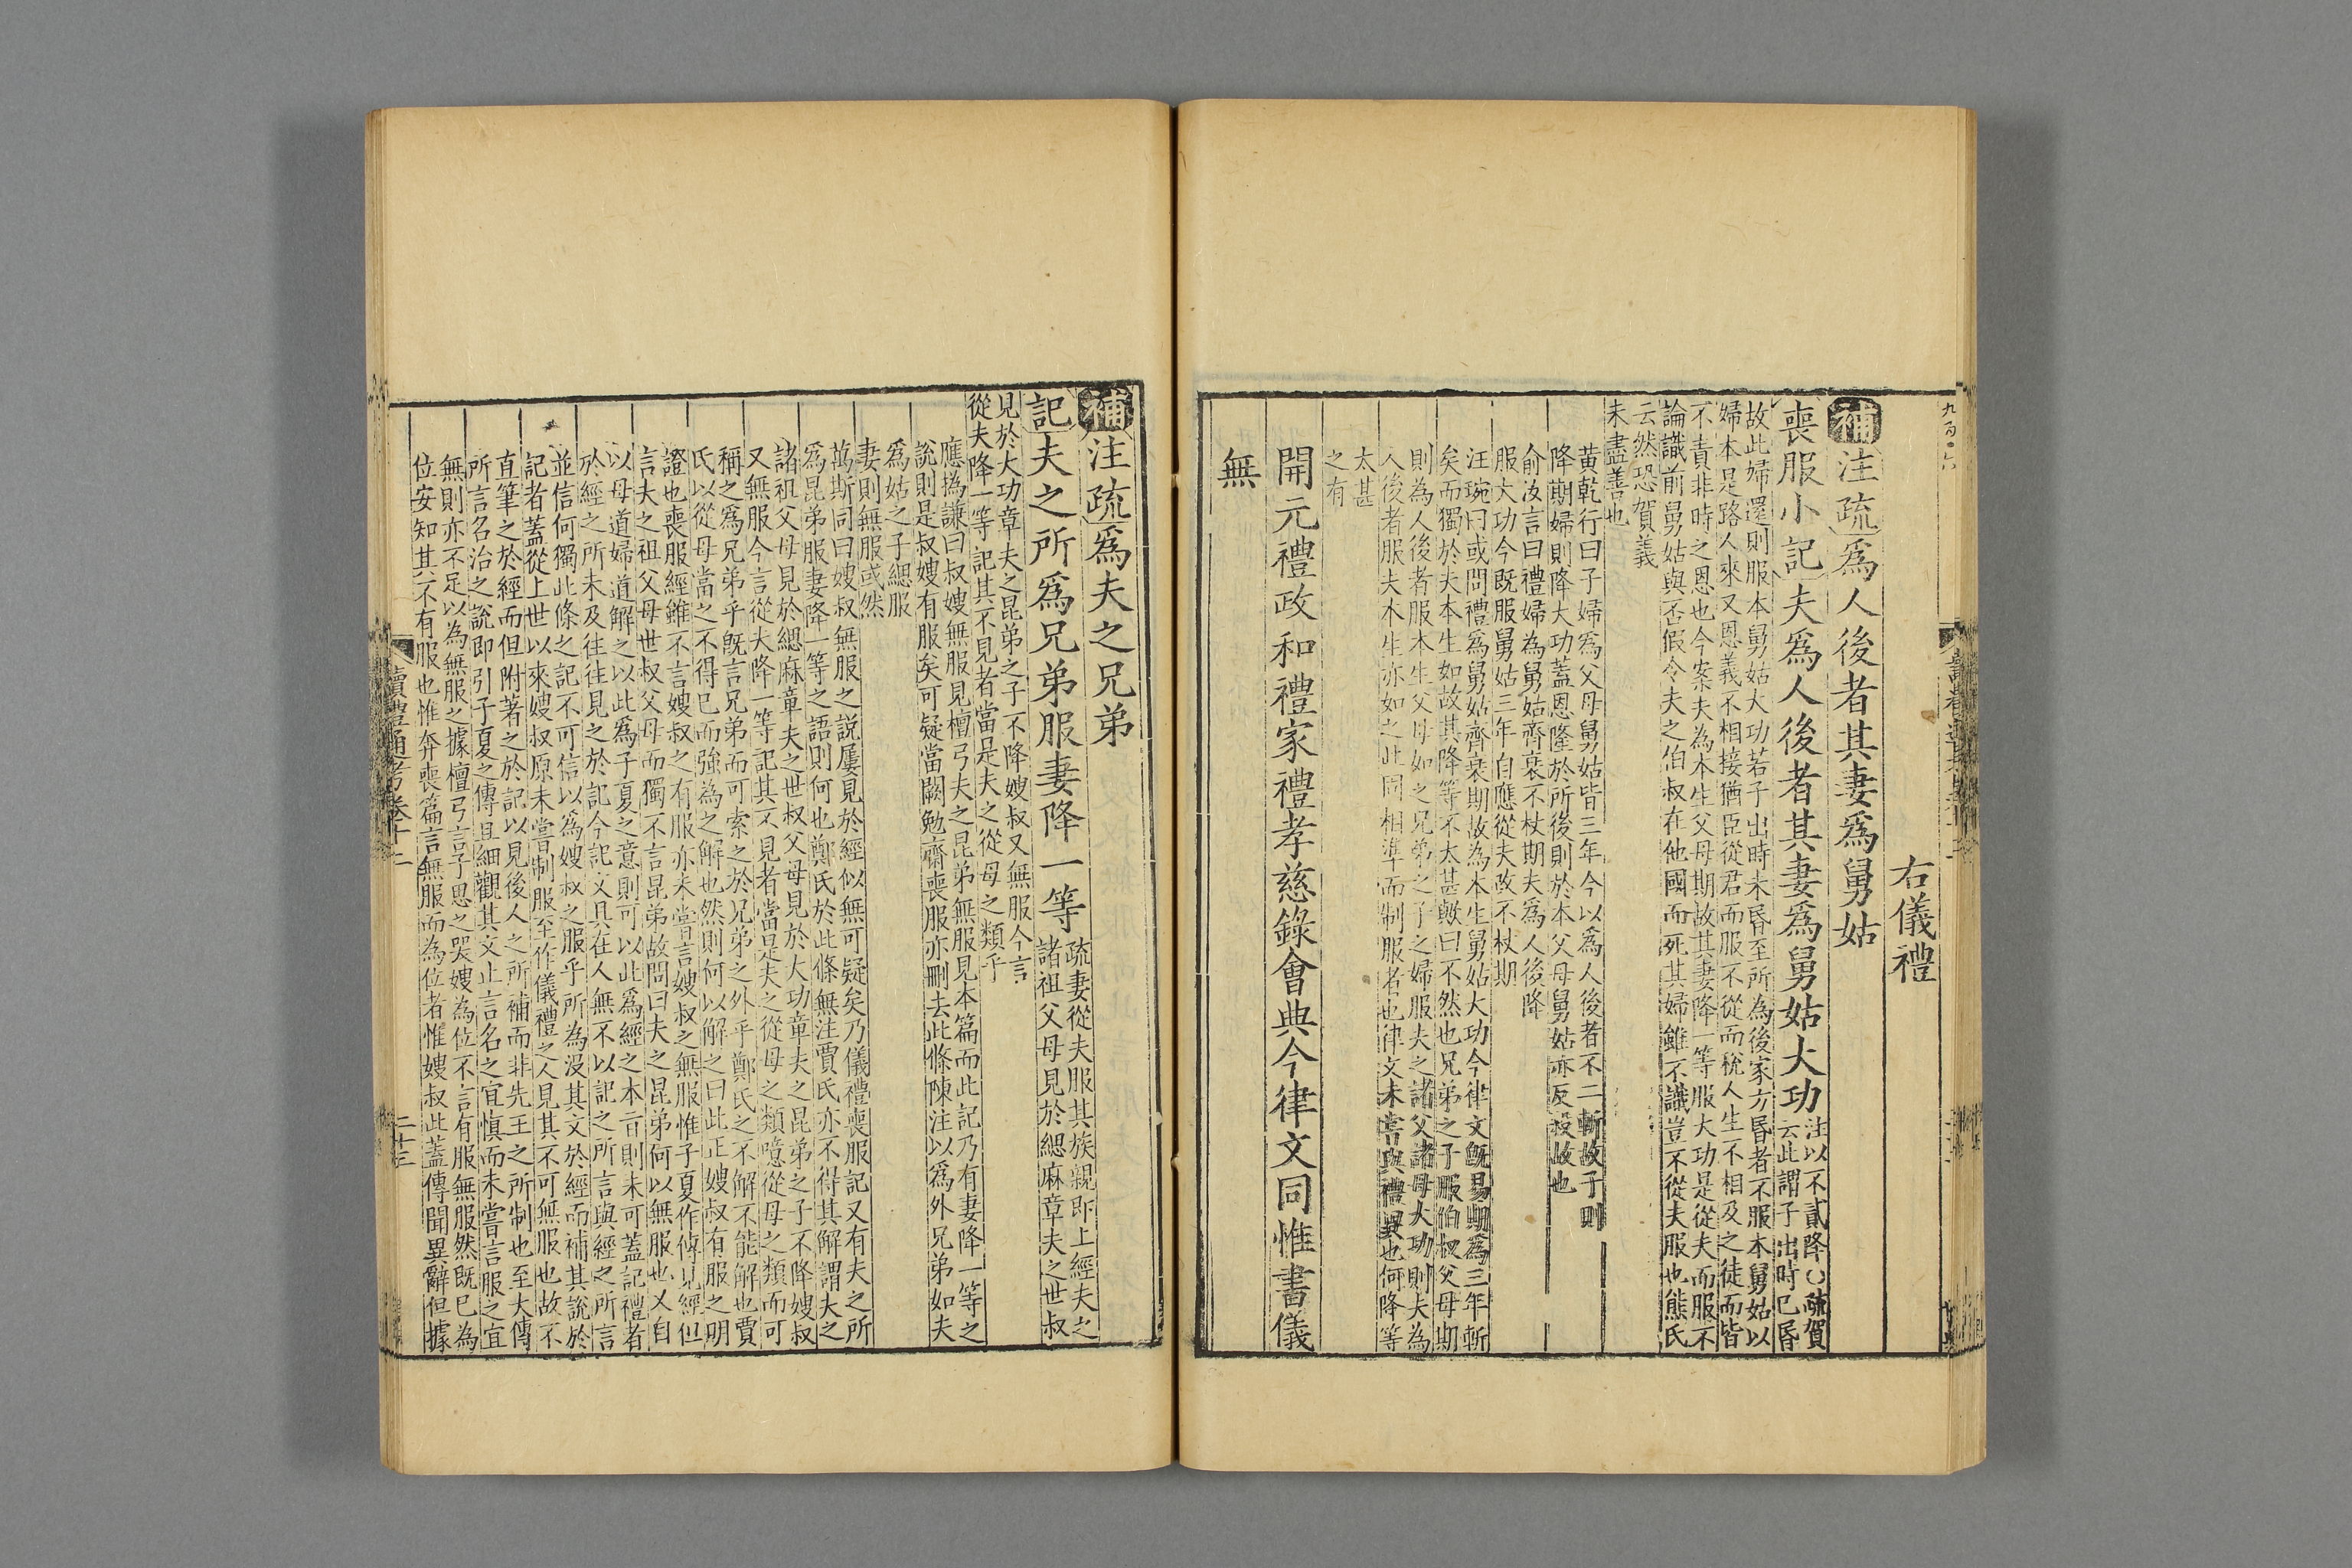 右儀禮
補注疏爲人後者其妻爲舅姑
喪服小記夫爲人後者其妻爲舅姑大功
注以不貳降○疏賀
云此謂子出時已昏
故此婦還則服本舅姑大功若子出時未昏至所為後家方昏者不服本舅姑以
婦本是路人來又恩義不相接猶臣從君而服不從而稅人生不相及之徒而皆
不責非時之恩也今案夫為本生父母期故其妻降一等服大功是從夫而服不
論識前舅姑與否假令夫之伯叔在他國而死其婦雖不識豈不從夫服也熊氏
云然恐賀義
未盡善也
黄乾行曰子婦爲父母舅姑皆三年今以爲人後者不二斬故子則
降期婦則降大功蓋恩隆於所後則於本父母舅姑亦反殺故也
俞汝言曰禮婦為舅姑齊衰不杖期夫爲人後降
服大功今既服舅姑三年自應從夫改不杖期
汪琬曰或問禮爲舅姑齊衰期故為本生舅姑大功今律文旣易期爲三年斬
矣而獨於夫本生如故其降等不太甚歟曰不然也兄弟之子服伯叔父母期
則為人後者服本生父母如之兄弟之子之婦服夫之諸父諸母大功則夫為
人後者服夫本生亦如之此同相準而制服者也律文未嘗與禮異也何降等
太甚
之有
開元禮政和禮家禮孝慈錄會典今律文同惟書儀
無
補注疏爲夫之兄弟
記夫之所爲兄弟服妻降一等
疏妻從夫服其族親即上經夫之
諸祖父母見於緦麻章夫之世叔
見於大功章夫之昆弟之子不降嫂叔又無服今言
從夫降一等記其不見者當是夫之從母之類乎
應撝謙曰叔嫂無服見檀弓夫之昆弟無服見本篇而此記乃有妻降一等之
說則是叔嫂有服矣可疑當闕勉齋喪服亦刪去此條陳注以爲外兄弟如夫
爲姑之子緦服
妻則無服或然
萬斯同曰嫂叔無服之説屢見於經似無可疑矣乃儀禮喪服記又有夫之所
爲昆弟服妻降一等之語則何也鄭氏於此條無注賈氏亦不得其解謂夫之
諸祖父母見於緦麻章夫之世叔父母見於大功章夫之昆弟之子不降嫂叔
又無服今言從夫降一等記其不見者當是夫之從母之類噫從母之類而可
稱之爲兄弟乎旣言兄弟而可索之於兄弟之外乎鄭氏之不解不能解也賈
氏以從母當之不得已而強為之解也然則何以解之曰此正嫂叔有服之明
證也喪服經雖不言嫂叔之有服亦未嘗言嫂叔之無服惟子夏作傳見經但
言夫之祖父母世叔父母而獨不言昆弟故問曰夫之昆弟何以無服也又自
以母道婦道解之以此爲子夏之意則可以此爲經之本言則未可蓋記禮者
於經之所未及往往見之於記今記文具在人無不以記之所言與經之所言
並信何獨此條之記不可信以為嫂叔之服乎所為没其文於經而補其說於
記者蓋從上世以來嫂叔原未嘗制服至作儀禮之人見其不可無服也故不
直筆之於經而但附著之於記以見後人之所補而非先王之所制也至大傳
所言名治之說即引子夏之傳且細觀其文止言名之宜慎而未嘗言服之宜
無則亦不足以為無服之據檀弓言子思之哭嫂為位不言有服無服然既已為
位安知其不有服也惟奔喪篇言無服而為位者惟嫂叔此蓋傳聞異辭但據
讀禮通考卷十二
二十三